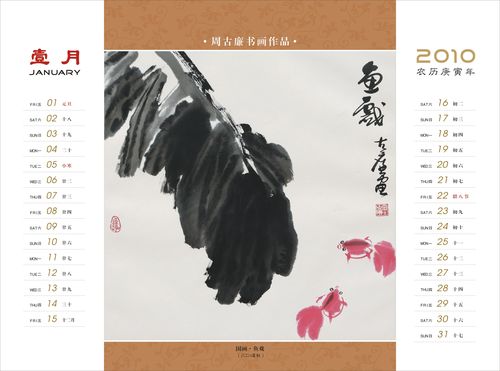 ·周古廉书画作品·
壹月
JANUARY
FRI五 01 元旦
SAT六 02 十八
SUN日 03 十九
MON一 04 二十
TUE二 05 小寒
WED三 06 廿二
THU四 07 廿三
FRI五 08 廿四
SAT六 09 廿五
SUN日 10 廿六
MON一 11 廿七
TUE二 12 廿八
WED三 13 廿九
THU四 14 三十
FRI五 15 十二月
魚戲
古廉画
国画·鱼戏
2010
农历庚寅年
SAT六 16 初二
SUN日 17 初三
MON一 18 初四
TUE二 19 初五
WED三 20 初六
THU四 21 初七
FRI五 22 腊八节
SAT六 23 初九
SUN日 24 初十
MON一 25 十一
TUE二 26 十二
WED三 27 十三
THU四 28 十四
FRI五 29 十五
SAT六 30 十六
SUN日 31 十七